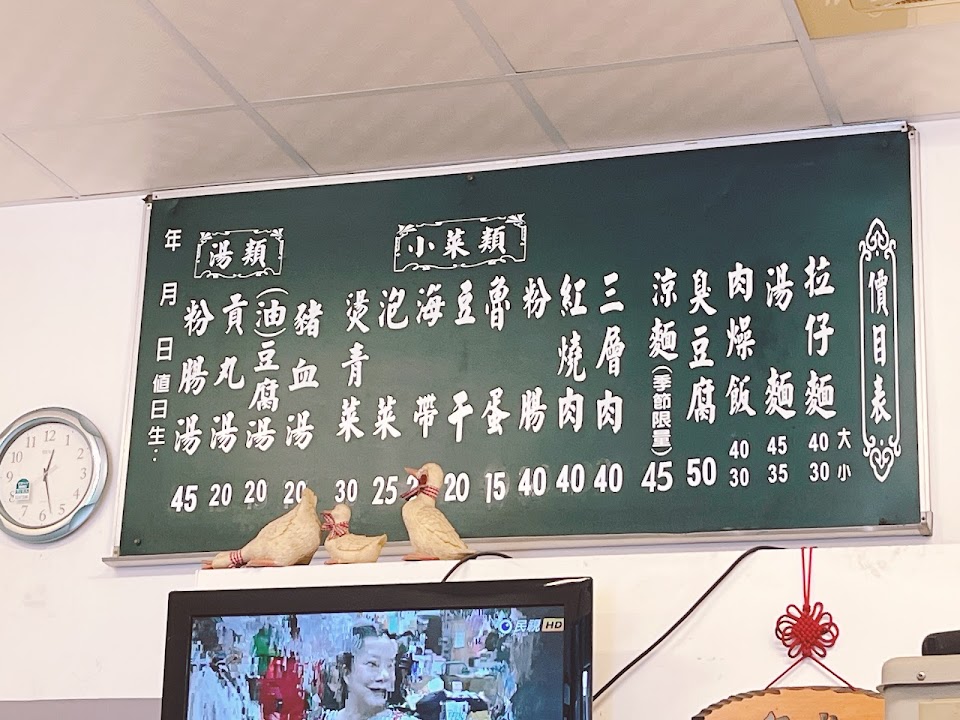 價目表
大 小
拉仔麵 40 30
湯麵 45 35
肉燥飯 40 30
臭豆腐 50
涼麵(季節限量) 45
小菜類
三層肉 40
紅燒肉 40
粉腸 40
魯蛋 15
豆干 20
海帶
泡菜 25
燙青菜 30
湯類
豬血湯 20
(油)豆腐湯 20
貢丸湯 20
粉腸湯 45
年月日值日生:
民視HD
12
1
2
3
4
5
6
7
8
9
10
11